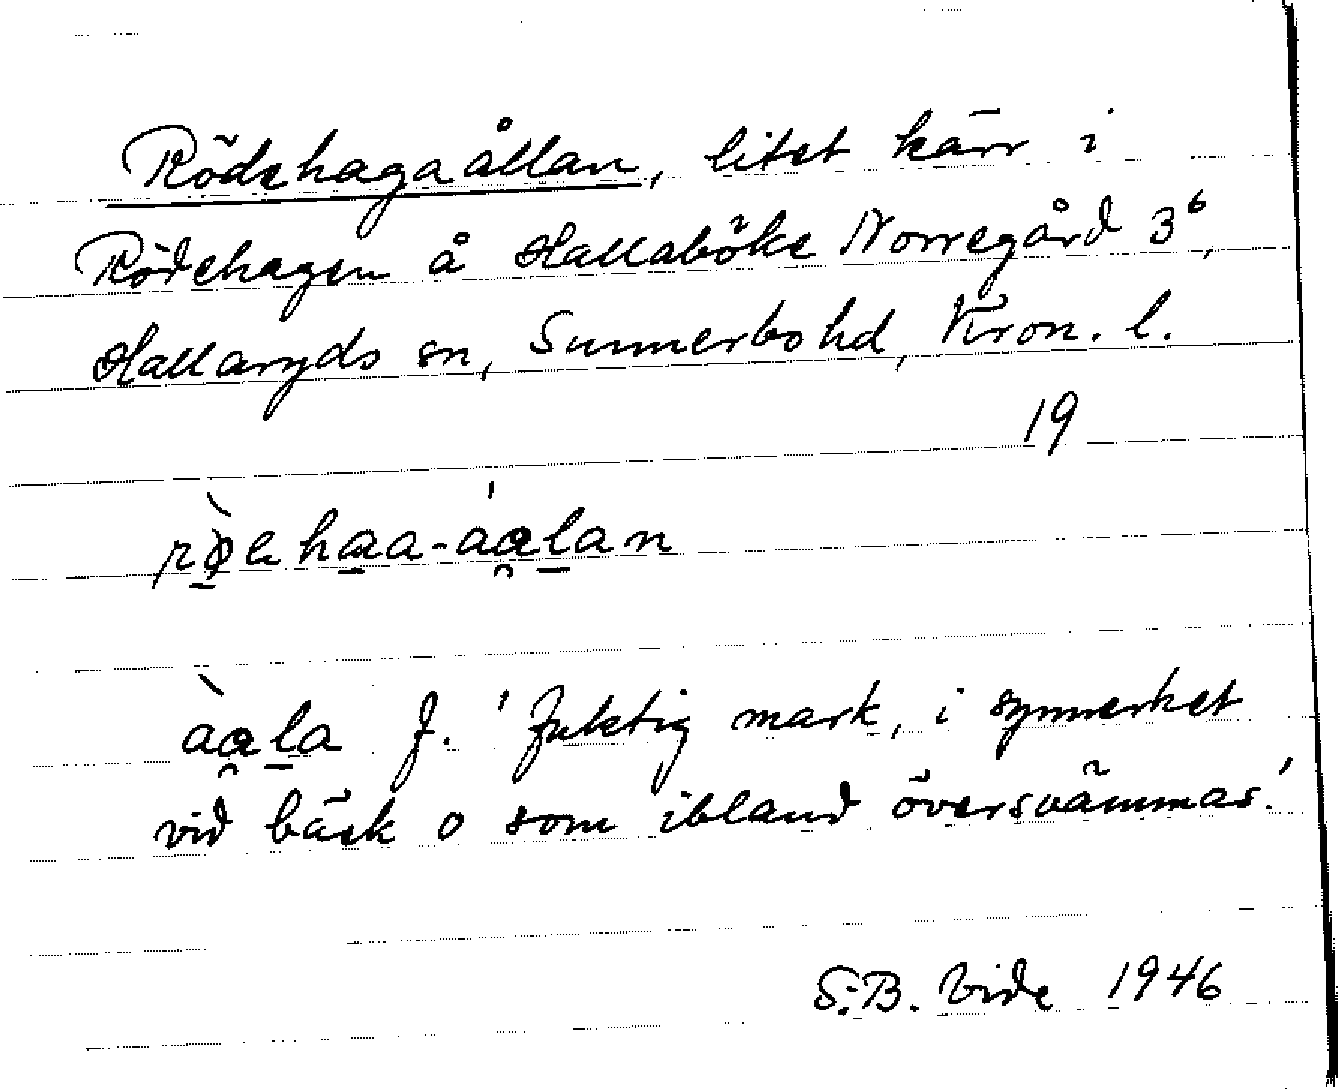 Rödehagaållan, litet kärr i
Rödehagen å Hallaböke Norregård 3⁶,
Hallaryds sn, Sunnerbo hd, Kron. l.
19
rø̀ehaa-áalan
àala f. 'fuktig mark, i synnerhet
vid bäck o som ibland översvämmas.'
S. B. Vide 1946